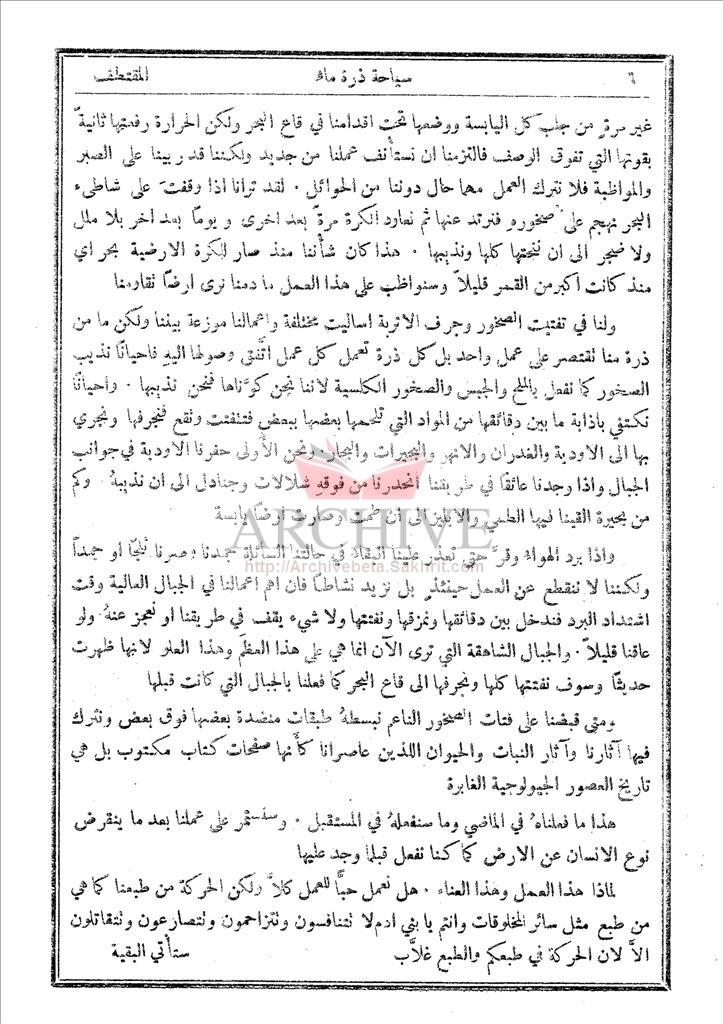 ٦ سياحة ذرة ماء المقتطف
غير مرةٍ من جلب كل اليابسة ووضعها تحت اقدامنا في قاع البحر ولكن الحرارة رفعتها ثانيةً
بقوتها التي تفوق الوصف فالتزمنا ان نستأنف عملنا من جديد ولكننا قد ربينا على الصبر
والمواظبة فلا نترك العمل مهما حال دوننا من الحوائل . لقد ترانا اذا وقفت على شاطىء
البحر نهجم على صخوره فنرتد عنها ثم نعاود الكرة مرةً بعد اخرى ويوماً بعد آخر بلا ملل
ولا ضجر الى ان ننحتها كلها ونذيبها . هذا كان شأننا منذ صار للكرة الارضية بحر اي
منذ كانت اكبر من القمر قليلاً وسنواظب على هذا العمل ما دمنا نرى ارضاً تقاومنا
ولنا في تفتيت الصخور وجرف الاتربة اساليب مختلفة واعمالنا موزعة بيننا ولكن ما من
ذرة منا تقتصر على عمل واحد بل كل ذرة تعمل كل عمل اتَّفق وصولها اليهِ فاحيانًا نذيب
الصخور كما نفعل بالملح والجبس والصخور الكلسية لاننا نحن كوَّناها فنحن نذيبها . واحيانًا
نكتفي باذابة ما بين دقائقها من المواد التي تلحمها بعضها ببعض فتتفتت وتقع فنجرفها ونجري
بها الى الاودية والغدران والانهر والبحيرات والبحار. ونحن الأولى حفرنا الاودية في جوانب
الجبال واذا وجدنا عائقًا في طريقنا انحدرنا من فوقهِ شلالات وجنادل الى ان نذيبهُ . وكم
من بحيرة القينا فيها الطمي والابليز الى ان طُمت وصارت ارضًا يابسة
واذا برد الهواء وقرَّ حتى تعذر علينا البقاء في حالتنا السائلة جمدنا وصرنا ثلجًا او جمدًا
ولكننا لا ننقطع عن العمل حينئذٍ بل نزيد نشاطًا فان اهم اعمالنا في الجبال العالية وقت
اشتداد البرد فندخل بين دقائقها ونمزقها ونفتتها ولا شيء يقف في طريقنا او نعجز عنهُ ولو
عاقنا قليلاً . والجبال الشاهقة التي ترى الآن انما هي على هذا العظم وهذا العلو لانها ظهرت
حديثًا وسوف نفتتها كلها ونجرفها الى قاع البحر كما فعلنا بالجبال التي كانت قبلها
ومتى قبضنا على فتات الصخور الناعم نبسطهُ طبقات منضدة بعضها فوق بعض ونترك
فيها آثارنا وآثار النبات والحيوان اللذين عاصرانا كأنها صفحات كتاب مكتوب بل هي
تاريخ العصور الجيولوجية الغابرة
هذا ما فعلناهُ في الماضي وما سنفعلهُ في المستقبل . وسنستمر على عملنا بعد ما ينقرض
نوع الانسان عن الارض كما كنا نفعل قبلما وجد عليها
لماذا هذا العمل وهذا العناء . هل نعمل حبًّا للعمل كلاَّ ولكن الحركة من طبعنا كما هي
من طبع مثل سائر المخلوقات وانتم يا بني ادم لا تتنافسون وتتزاحمون وتتصارعون وتتقاتلون
الاَّ لان الحركة في طبعكم والطبع غلاَّب ستأتي البقية
ARCHIVE
http://Archivebeta.Sakhrit.com